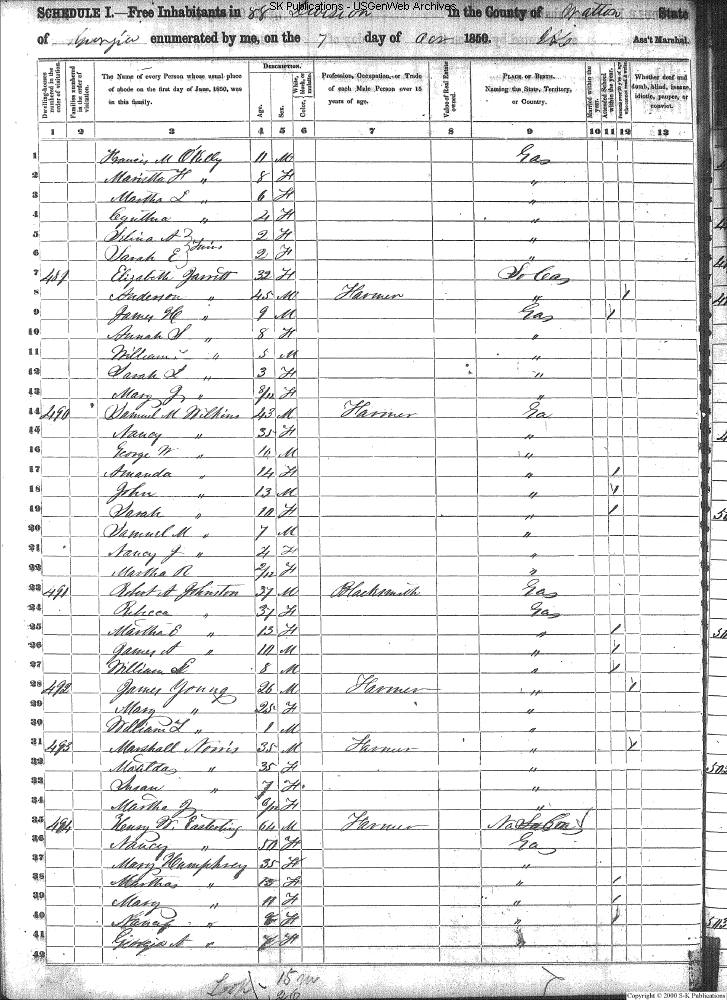 SK Publications - USGenWeb Archives
SCHEDULE I.—Free Inhabitants in 88 Division in the County of Walton State
of Georgia enumerated by me, on the 7 day of 1850. Ass't Marshal.
Dwelling-houses numbered in the order of visitation.
Families numbered in the order of visitation.
The Name of every Person whose usual place of abode on the first day of June, 1850, was in this family.
DESCRIPTION.
Age.
Sex.
Color, White, black, or mulatto.
Profession, Occupation, or Trade of each Male Person over 15 years of age.
Value of Real Estate owned.
PLACE OF BIRTH. Naming the State, Territory, or Country.
Married within the year.
Attended School within the year.
Whether deaf and dumb, blind, insane, idiotic, pauper, or convict.
1 2 3 4 5 6 7 8 9 10 11 12 13
1 Francis M O'Kelly 11 M Ga
2 Marietta F " 8 F "
3 Martha L " 6 F "
4 " 4 F "
5 2 F "
6 Sarah E Twins 2 F "
7 489 Elizabeth Garrett 32 F So Ca
8 Anderson " 45 M Farmer " /
9 James " 9 M Ga /
10 Annah S " 8 F "
11 William " 5 M "
12 Sarah L " 3 F "
13 Mary J " 8/12 F "
14 490 Samuel M Wilkins 43 M Farmer Ga
15 Nancy " 35 F "
16 George W " M "
17 Amanda " 14 F " /
18 John " 13 M " /
19 Sarah " 10 F " /
20 Samuel M " 7 M "
21 Nancy J " 4 F "
22 Martha R 2/12 F "
23 491 Robert A Johnston 37 M Blacksmith Ga
24 Rebecca " 37 F Ga
25 Martha E " 13 F " /
26 James A " 10 M " /
27 William " 8 M " /
28 492 James Young 26 M Farmer " /
29 Mary " 25 F "
30 William L " 1 M "
31 493 Marshall Norris 35 M Farmer " /
32 Matilda " 35 F "
33 Susan " 7 F "
34 Martha J 6/12 F "
35 494 Henry W. Easterling 64 M Farmer
36 Nancy " 50 F Ga
37 Mary Humphrey 35 F "
38 Martha " 13 F " /
39 Mary " 11 F " /
40 Nancy " F " /
41 Georgia A " F "
42
Copyright © 2000 S-K Publications